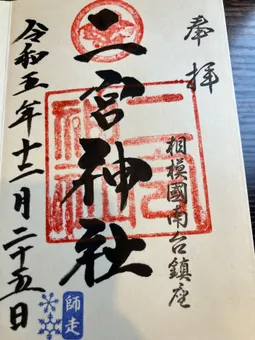 奉拝
相模國南台鎮座
二宮神社
令和五年十二月二十五日
師走